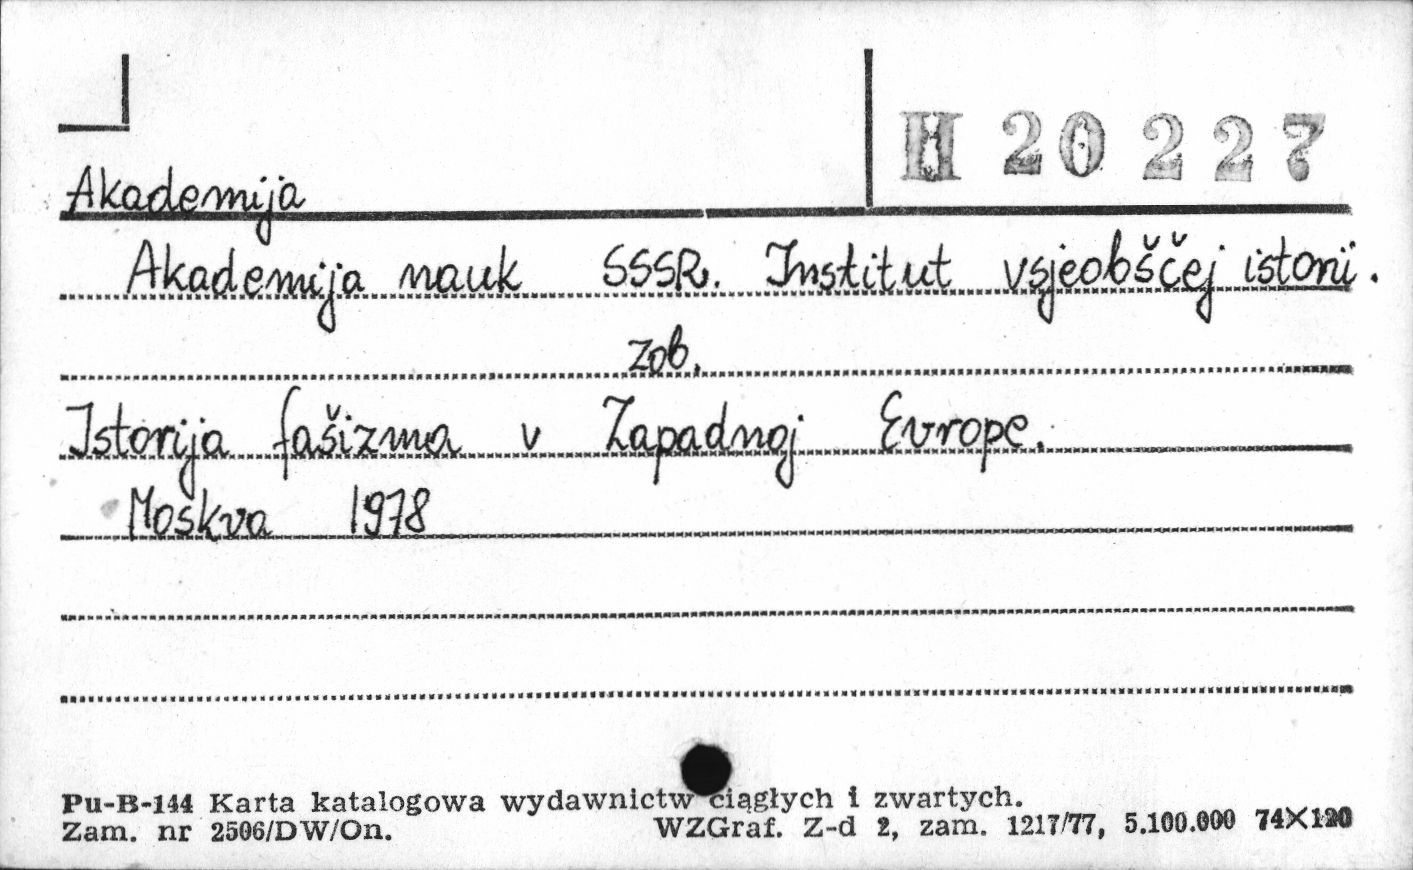 H 20 227
Akademija
Akademija nauk SSSR. Institut vsjeobščej istorii.
zob.
Istorija fašizma v Zapadnoj Evrope.
Moskva 1978
Pu-B-144 Karta katalogowa wydawnictw ciągłych i zwartych.
Zam. nr 2506/DW/On. WZGraf. Z-d 2, zam. 1217/77, 5.100.000 74×120